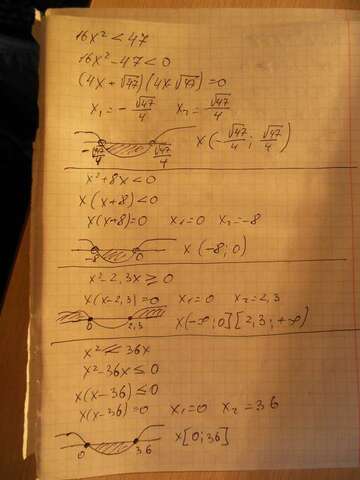 16x² < 47
16x² - 47 < 0
(4x + √47)(4x - √47) = 0
x₁ = - √47/4 x₂ = √47/4
-√47/4 √47/4 x(-√47/4 ; √47/4)
x² + 8x < 0
x(x + 8) < 0
x(x + 8) = 0 x₁ = 0 x₂ = -8
-8 0 x(-8; 0)
x² - 2,3x ≥ 0
x(x - 2,3) = 0 x₁ = 0 x₂ = 2,3
0 2,3 x(-∞; 0][2,3; +∞)
x² ≤ 36x
x² - 36x ≤ 0
x(x - 36) ≤ 0
x(x - 36) = 0 x₁ = 0 x₂ = 36
0 36 x[0; 36]